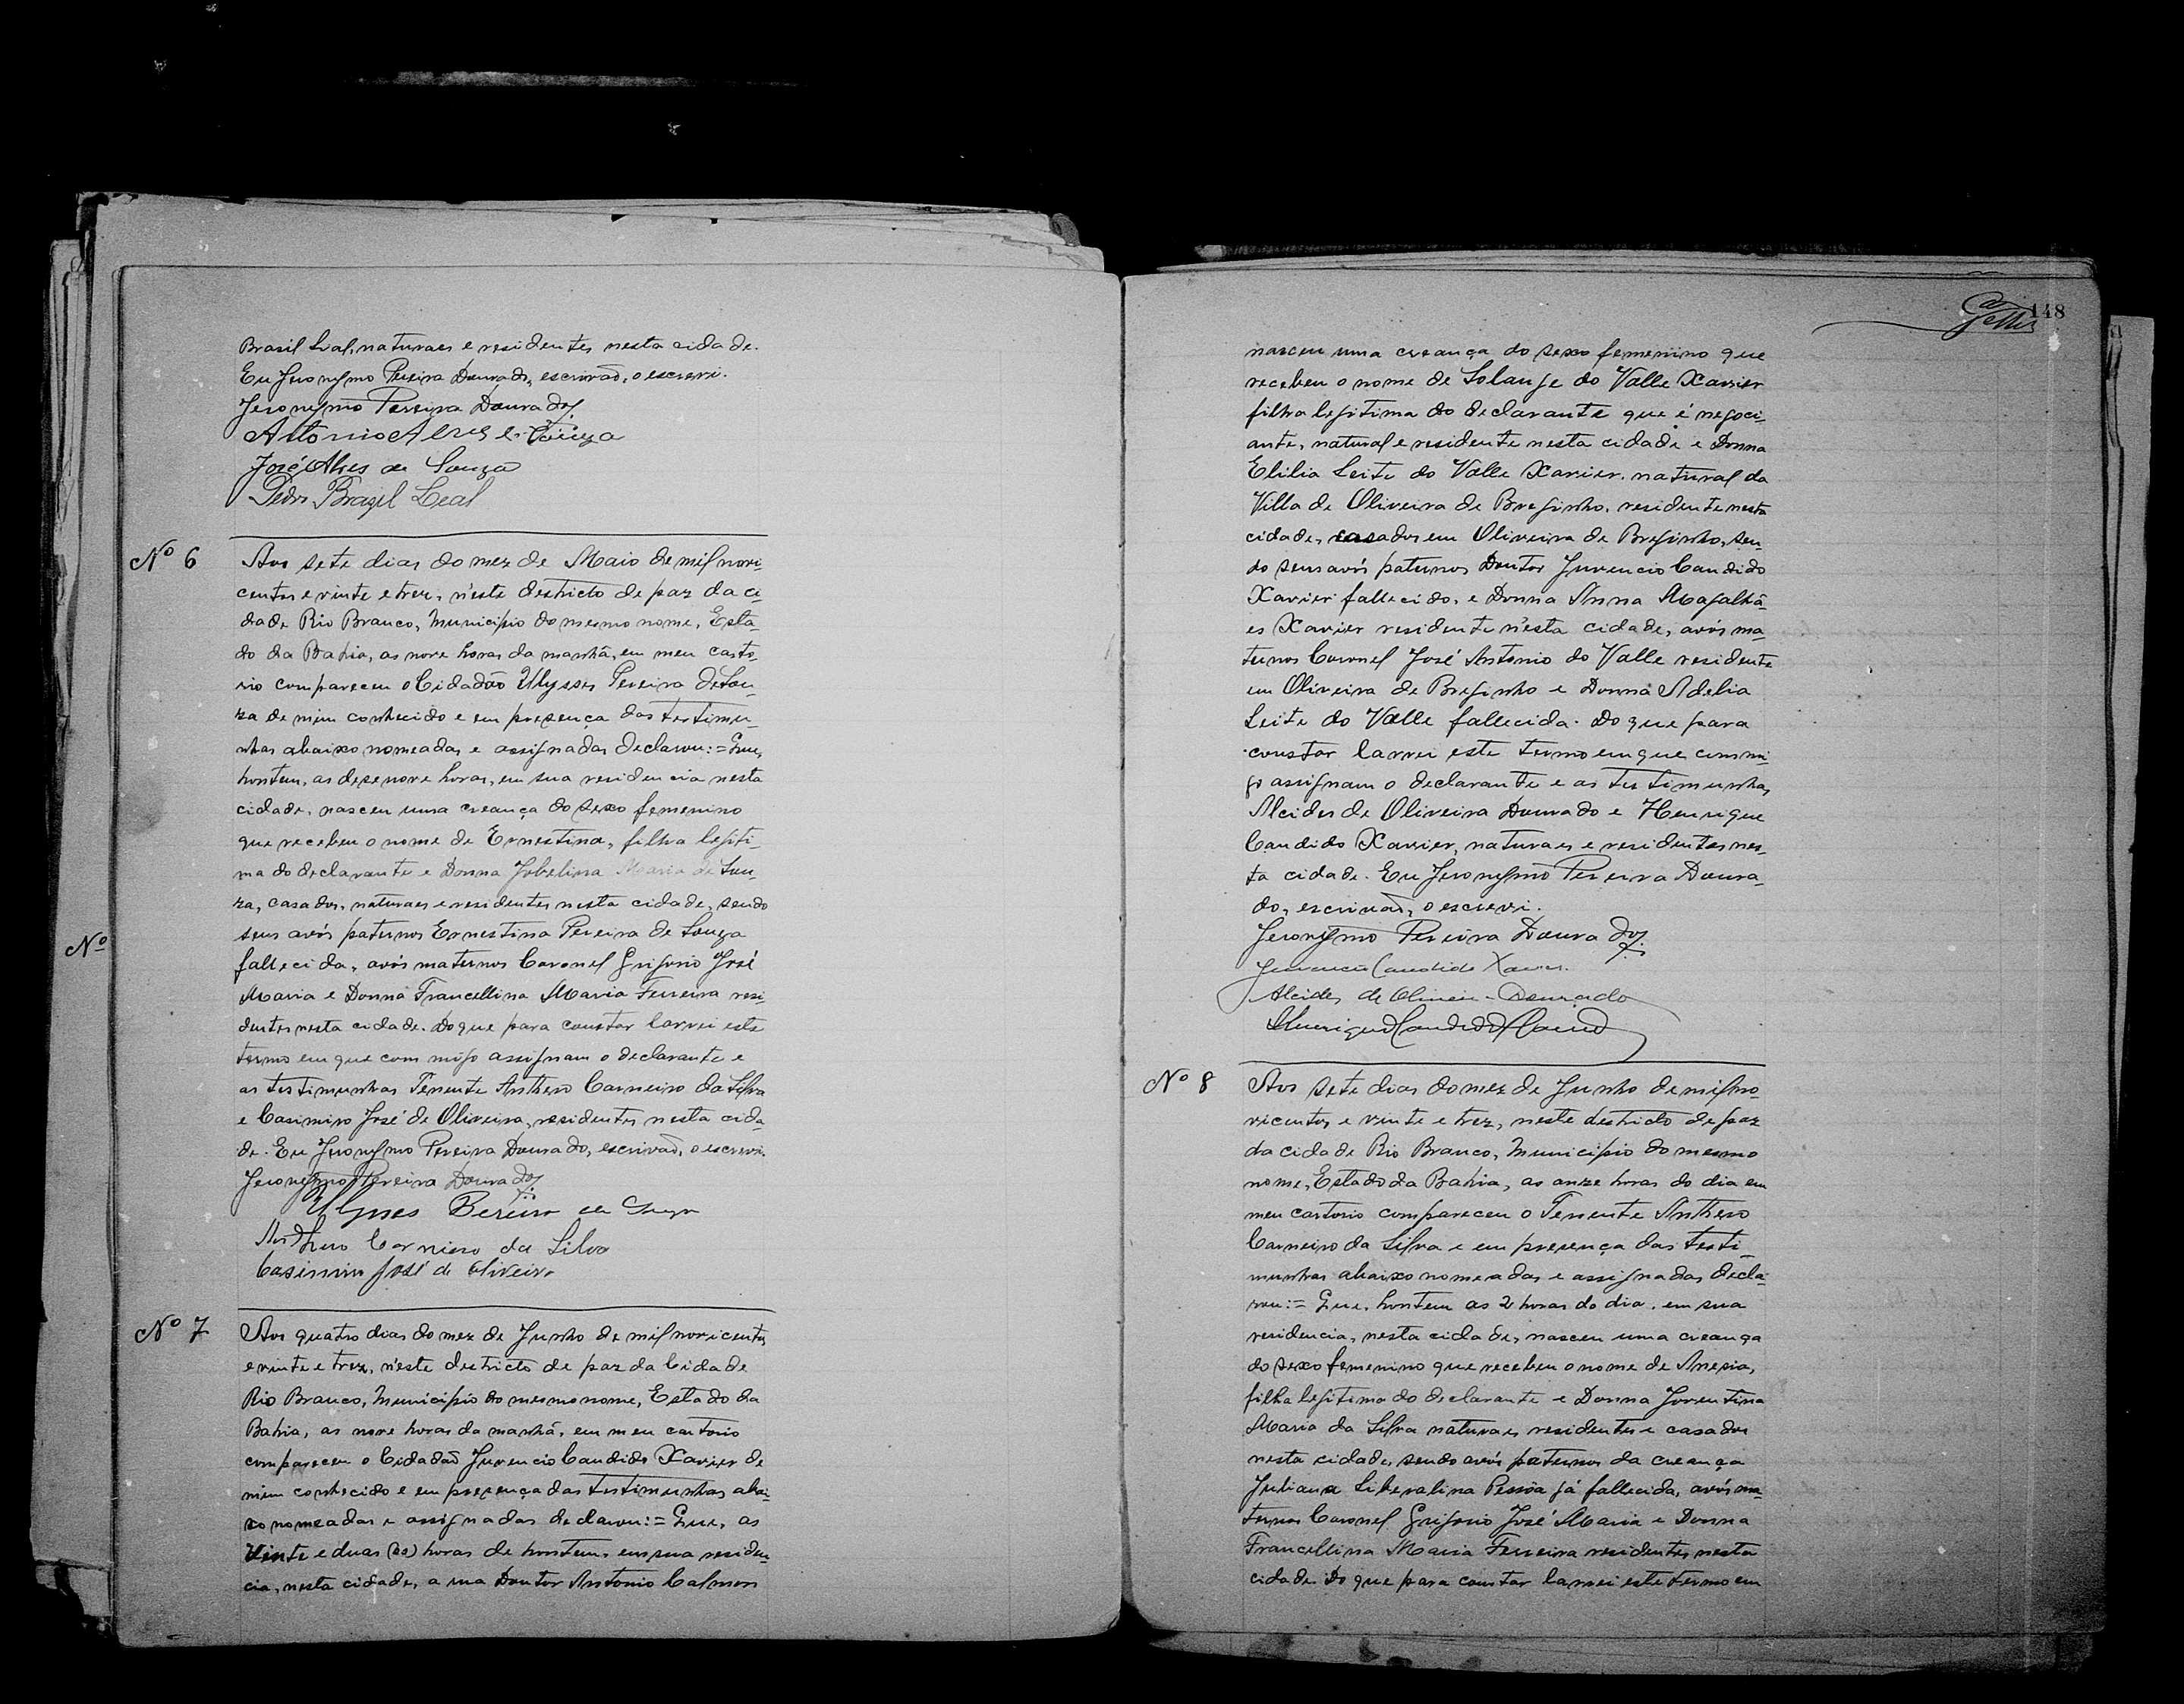 Brasil Leal, naturaes e residentes nesta cidade.
Eu Jeronymo Pereira Dourado, escrivaõ, o escrevi.
Jeronymo Pereira Dourado
Antonio Alves de Souza
José Alves de Souza
Pedro Brazil Leal
Nº 6
Aos sete dias do mez de Maio de mil nove-
centos e vinte e trez, n'este destricto de paz da ci-
dade Rio Branco, Municipio do mesmo nome, Esta-
do da Bahia, as nove horas da manhã, em meu carto-
rio compareceu o Cidadão Ulysses Pereira de Sou-
za de mim conhecido e em presença das testimu-
nhas abaixo nomeadas e assignadas declarou:= Que,
hontem, as desenove horas, em sua residencia nesta
cidade, nasceu uma creança do sexo femenino
que recebeu o nome de Ernestina, filha legiti-
ma do declarante e Donna Jobelina Maria de Sou-
za, casados, naturaes e residentes nesta cidade, sendo
seus avós paternos Ernestina Pereira de Souza
Nº
fallecida, avós maternos Coronel Grigorio José
Maria e Donna Francellina Maria Ferreira resi-
dentes nesta cidade. Do que para constar lavrei este
termo em que com migo assignam o declarante e
as testimunhas Tenente Anthero Carneiro da Silva
e Casimiro José de Oliveira, residentes nesta cida-
de. Eu Jeronymo Pereira Dourado, escrivaõ, o escrevi.
Jeronymo Pereira Dourado
Ulysses Pereira de Souza
Anthero Carneiro da Silva
Casimiro José de Oliveira
Nº 7
Aos quatro dias do mez de Junho de mil novicentos
e vinte e trez, n'este destricto de paz da Cidade
Rio Branco, Municipio do mesmo nome, Estado da
Bahia, as nove horas da manhã, em meu cartorio
compareceu o Cidadaõ Juvencio Candido Xavier de
mim conhecido e em presença das testimunhas abai-
xo nomeadas e assignadas declarou:= Que, as
Vinte e duas (22) horas de hontem, em sua residen-
cia, nesta cidade, a rua Doutor Antonio Calmon
148
nasceu uma creança do sexo femenino que
recebeu o nome de Solange do Valle Xavier
filha legitima do declarante que é negoci-
ante, natural e residente nesta cidade e Donna
Elilia Leite do Valle Xavier, natural da
Villa de Oliveira de Bresinho, residente nesta
cidade, casados em Oliveira de Bresinho, sen-
do seus avós paternos Doutor Juvencio Candido
Xavier fallecido, e Donna Anna Magalhã-
es Xavier residente n'esta cidade, avós ma-
ternos Coronel José Antonio do Valle residente
em Oliveira de Bresinho e Donna Adelia
Leite do Valle fallecida. Do que para
constar lavrei este termo em que commi-
go assignam o declarante e as testimunhas,
Alcides de Oliveira Dourado e Henrique
Candido Xavier, naturaes e residentes nes-
ta cidade. Eu Jeronymo Pereira Doura-
do, escrivaõ, o escrevi.
Jeronymo Pereira Dourado
Juvencio Candido Xavier
Alcides de Oliveira Dourado
Henrique Candido Xavier
Nº 8
Aos sete dias do mez de Junho de mil no-
vicentos e vinte e trez, neste destricto de paz
da cidade Rio Branco, Municipio do mesmo
nome, Estado da Bahia, as onze horas do dia em
meu cartorio compareceu o Tenente Anthero
Carneiro da Silva e em presença das testi-
munhas abaixo nomeadas e assignadas decla-
rou:= Que, hontem as 2 horas do dia, em sua
residencia, nesta cidade, nasceu uma creança
do sexo femenino que recebeu o nome de Anesia,
filha legitima do declarante e Donna Joventina
Maria da Silva naturaes residentes e casados
nesta cidade, sendo avós paternos da creança
Juliana Liberalina Pessôa já fallecida, avós ma-
ternos Coronel Grigorio José Maria e Donna
Francellina Maria Ferreira residentes nesta
cidade. Do que para constar lavrei este termo em